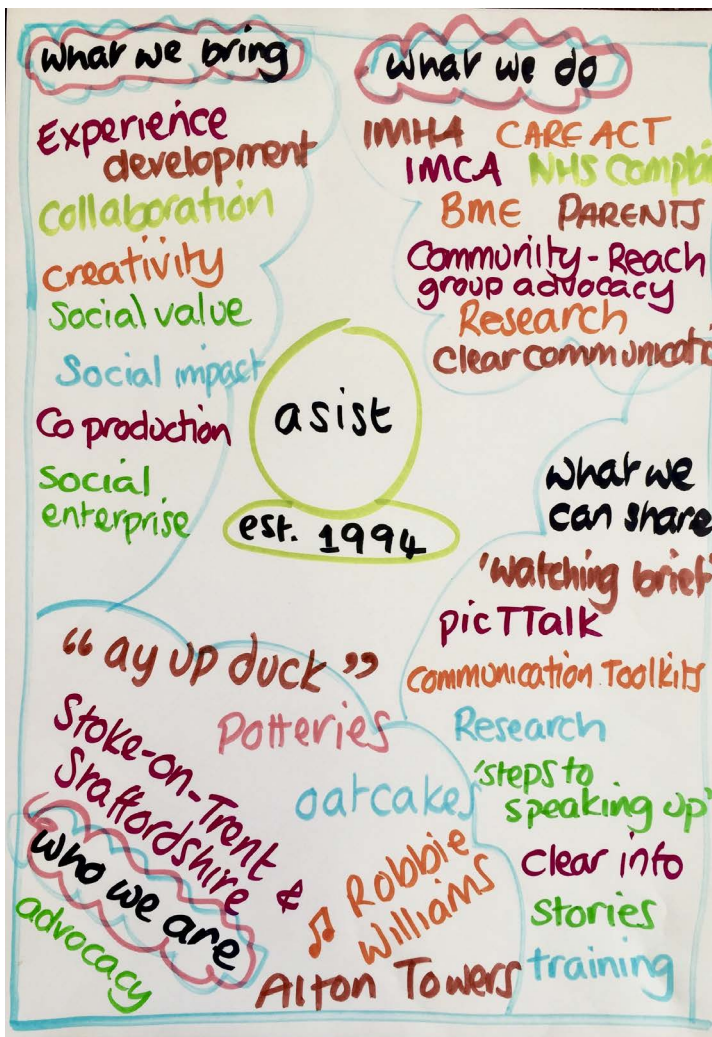 what we bring
Experience
development
collaboration
creativity
Social value
Social impact
Co production
Social
enterprise
what we do
IMHA CARE ACT
IMCA NHS Compla
BME PARENTS
Community-Reach
group advocacy
Research
clear communicati
asist
est. 1994
what we
can share
'watching brief'
picTTalk
communication Toolkits
Research
'steps to
speaking up'
clear info
stories
training
"ay up duck"
Potteries
Stoke-on-Trent &
Staffordshire
oatcakes
who we are
Robbie
Williams
advocacy
Alton Towers